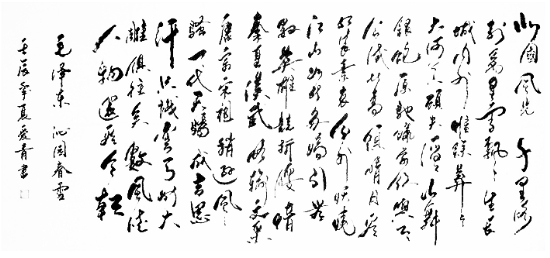 北国风光 千里冰
封万里雪飘望长
城内外惟余莽莽
大河上下顿失滔滔山舞
银蛇原驰蜡象欲与天
公试比高须晴日看
红装素裹分外妖娆
江山如此多娇引无
数英雄竞折腰惜
秦皇汉武略输文采
唐宗宋祖稍逊风
骚一代天骄成吉思
汗只识弯弓射大
雕俱往矣数风流
人物还看今朝
毛泽东 沁园春雪
壬辰季夏爱青书